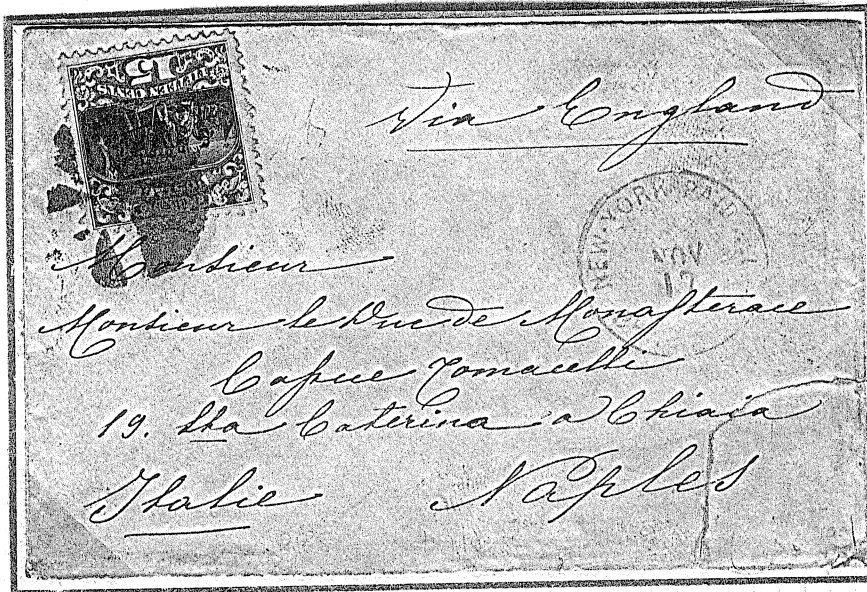 15
FIFTEEN CENTS
Via England
NEW-YORK PAID
NOV
12
Monsieur
Monsieur le Duc de Monasterace
Tomacelli
19. Sta Caterina a Chiaia
Italie Naples